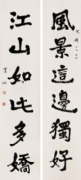 風景這邊獨好
江山如此多嬌